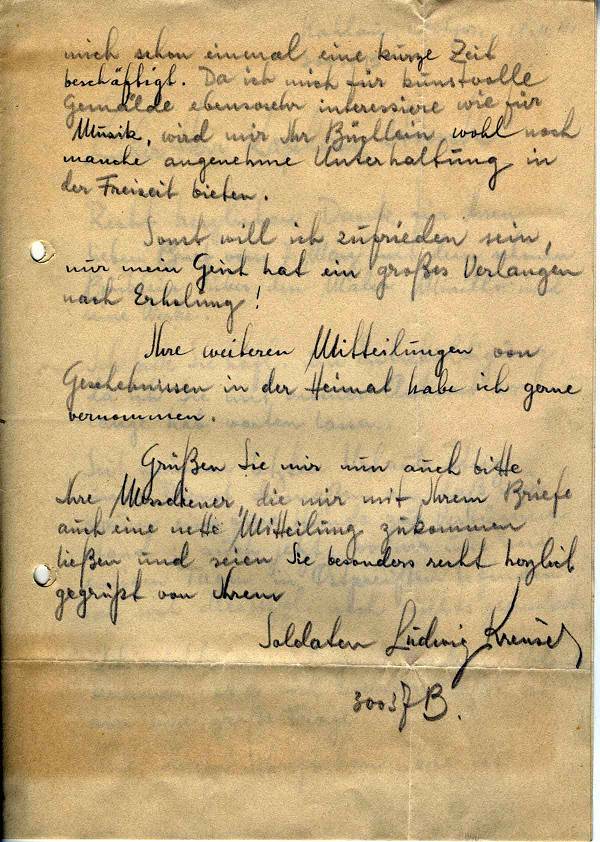 mich schon einemal eine kurze Zeit
beschäftigt. Da ich mich für kunstvolle
Gemälde ebensosehr interessiere wie für
Musik, wird mir Ihr Büchlein wohl noch
manche angenehme Unterhaltung in
der Freizeit bieten.
Sonst will ich zufrieden sein,
nur mein Geist hat ein großes Verlangen
nach Erholung!
Ihre weiteren Mitteilungen von
Geschehnissen in der Heimat habe ich gerne
vernommen.
Grüßen Sie mir nun auch bitte
Ihre Messdiener, die mir mit Ihrem Briefe
auch eine nette Mitteilung zukommen
ließen und seien Sie besonders recht herzlich
gegrüßt von Ihrem
Soldaten Ludwig Kreusel
30037 B.